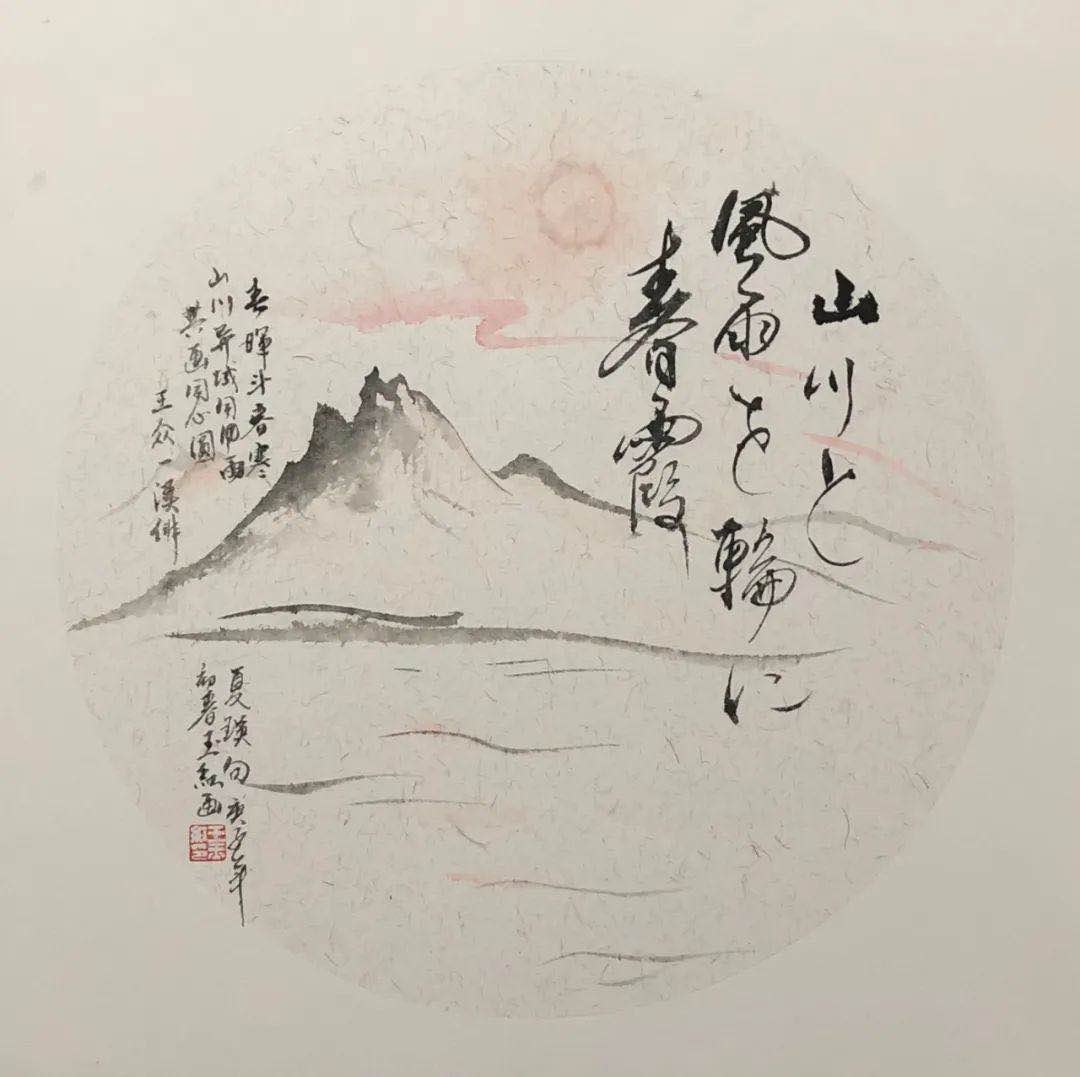 山川と
風雨を輪に
春霞
春暉斗春寒
山川异域同风雨
共画同心圓
王众一漢俳
夏瑛句庚子年
初春玉红画